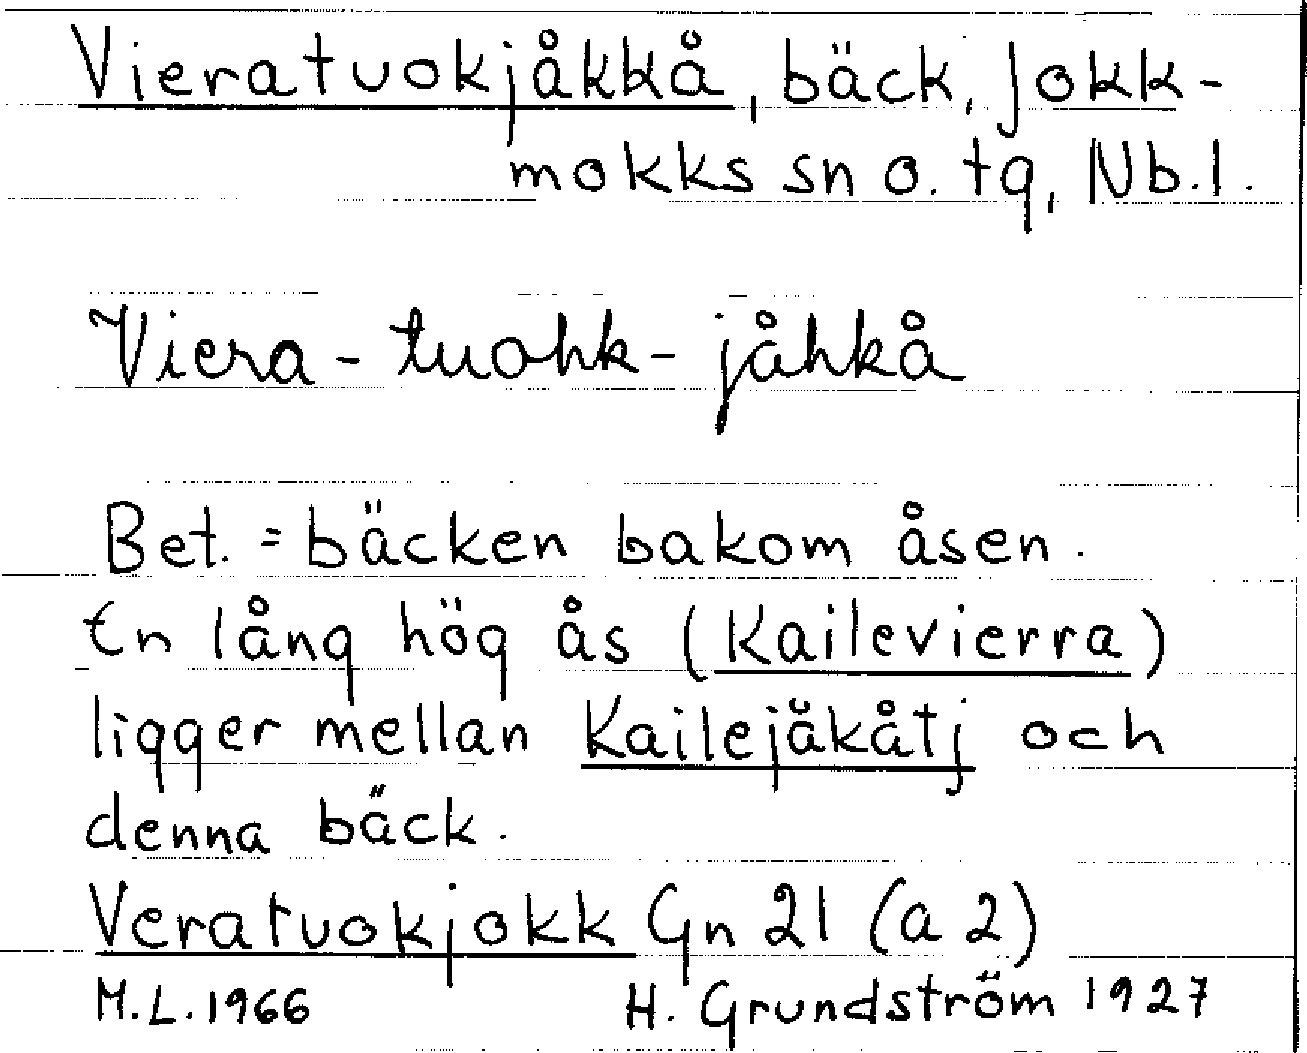 Vieratuokjåkkå, bäck, Jokk-
mokks sn o. tg, Nb.l.
Viera-tuohk-jåhkå
Bet. = bäcken bakom åsen.
En lång hög ås (Kailevierra)
ligger mellan Kailejåkåtj och
denna bäck.
Veratuokjokk Gn 21 (a 2)
M.L. 1966 H. Grundström 1927